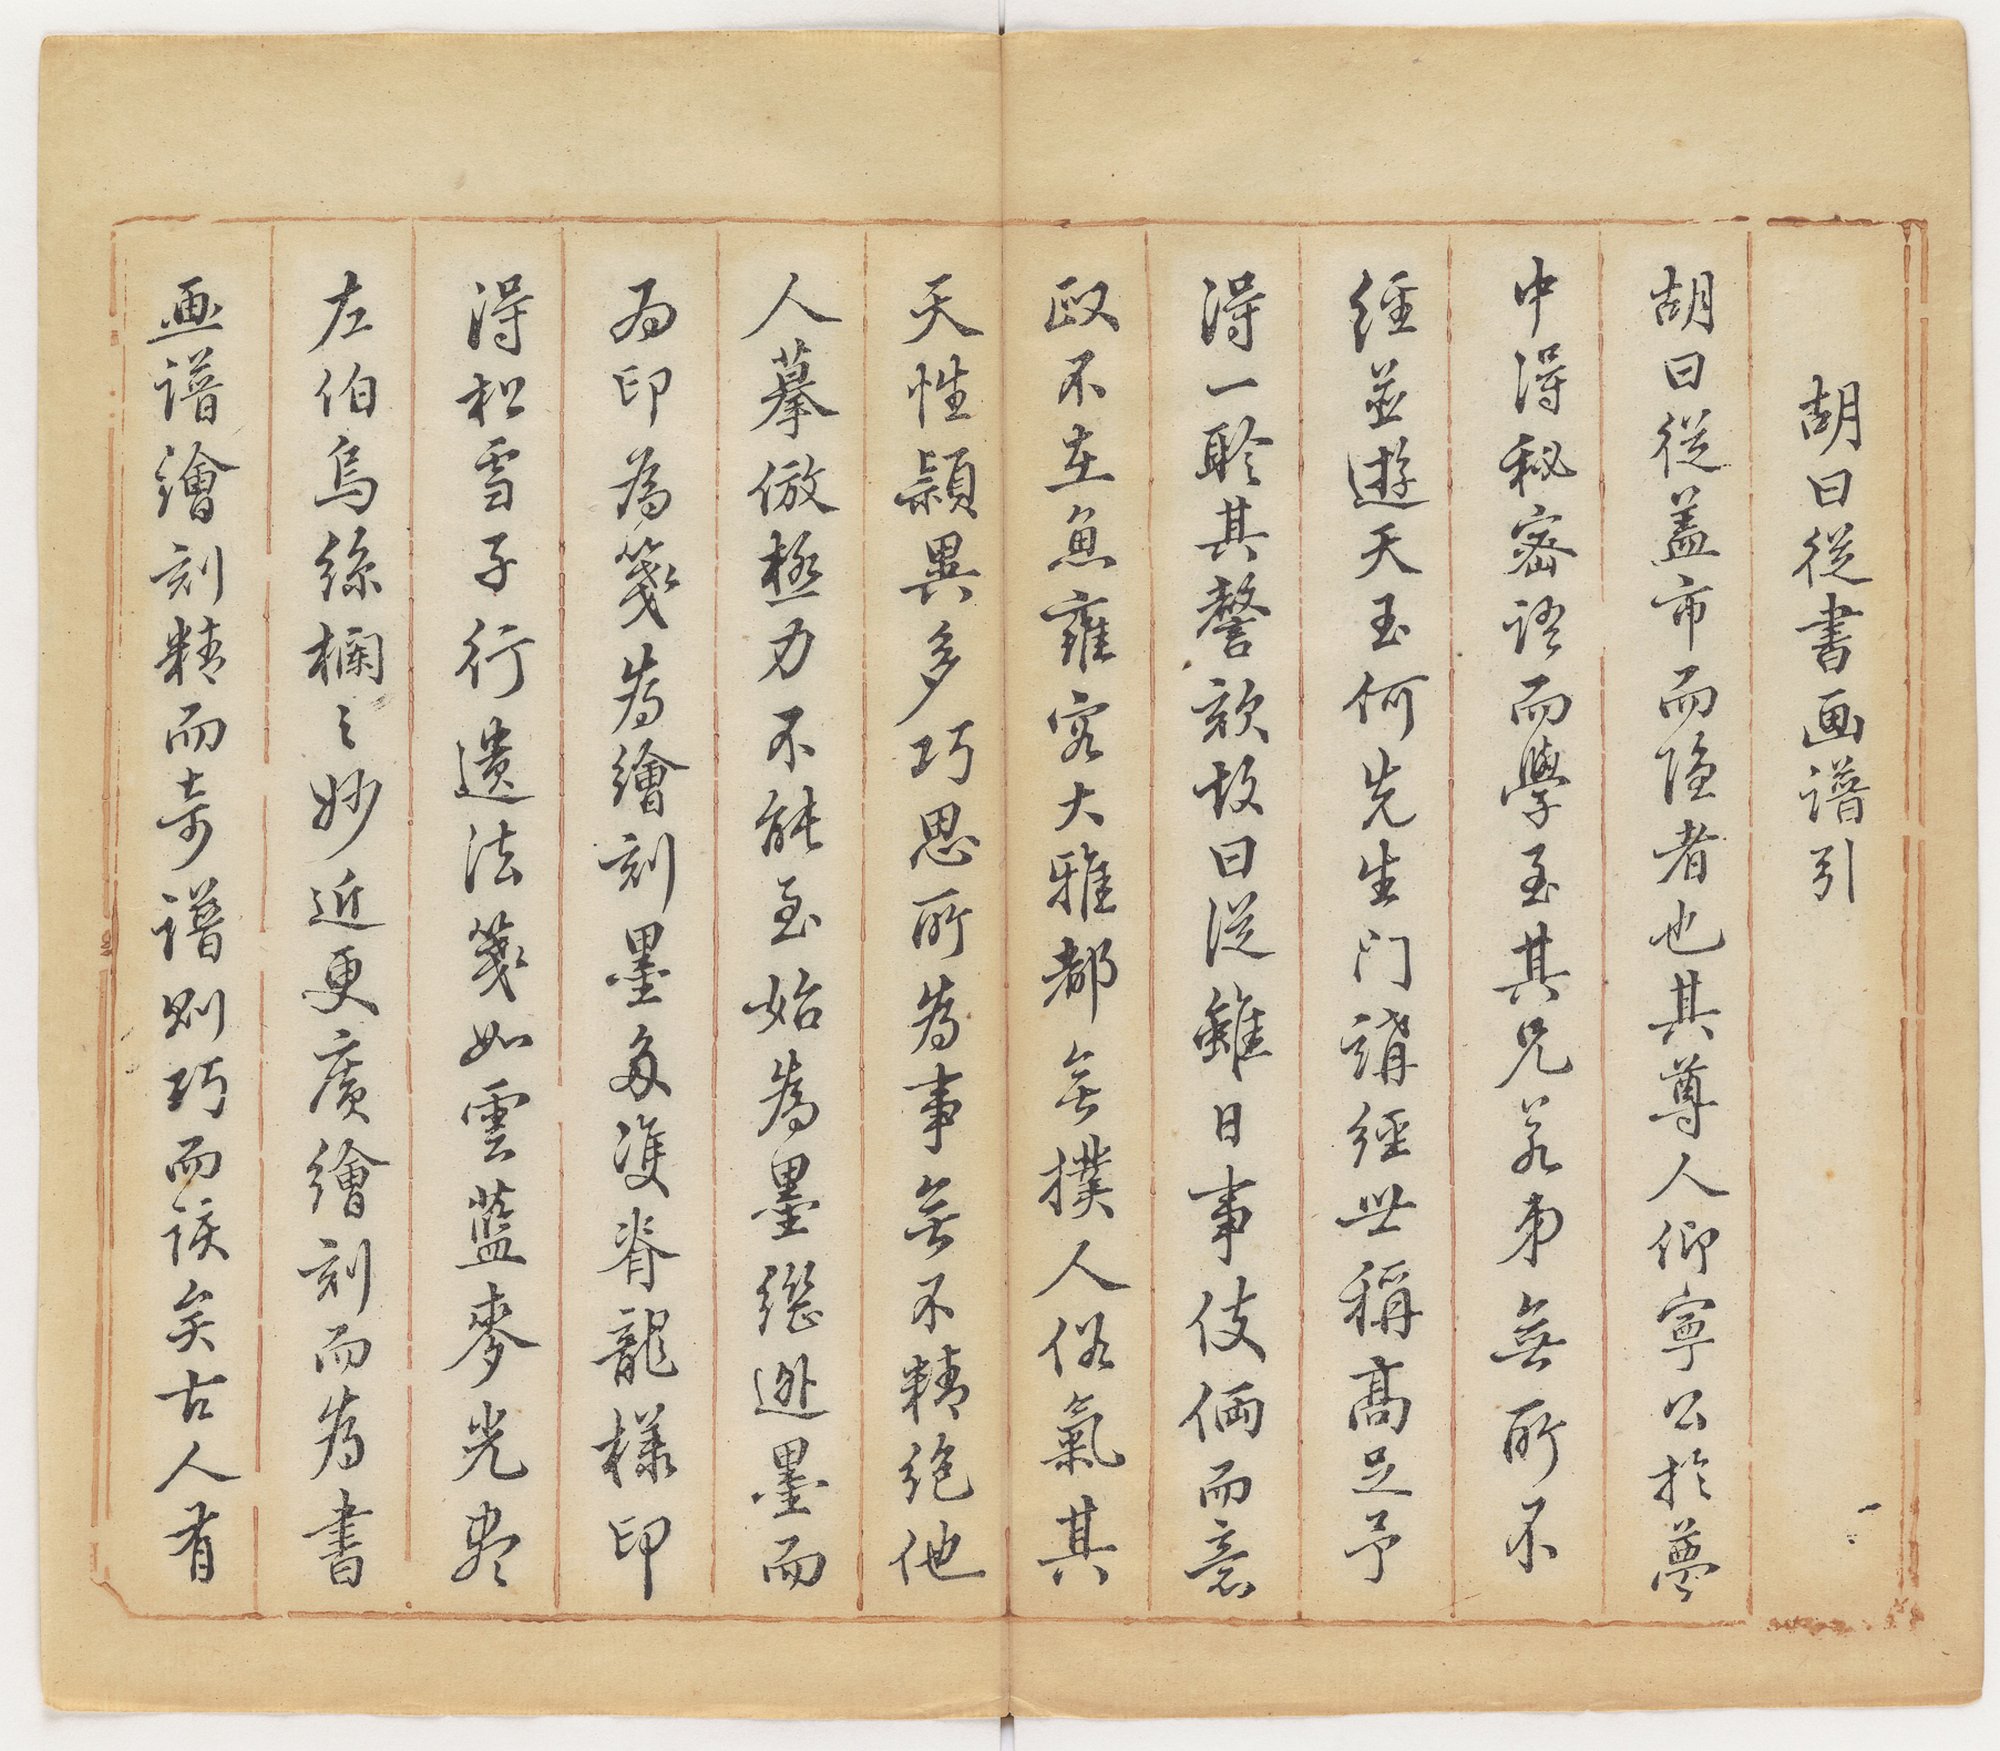 胡曰從書画譜引
胡曰從盖市而隐者也其尊人仰寧公於夢
中淂秘密語而學至其兄若弟無所不
經並遊天玉何先生门講經世稱髙足予
淂一聆其謦欬故曰從雖日事伎倆而意
殹不在魚雍容大雅都無撲人俗氣其
天性顈異多巧思所為事無不精絶他
人摹倣極力不能至始為墨繼逊墨而
為印為箋為繪刻墨多雙脊龍樣印
淂松雪子行遗法箋如雲藍麥光盡
左伯烏絲欄之妙近更廣繪刻而為書
画譜繪刻精而奇譜則巧而該矣古人有